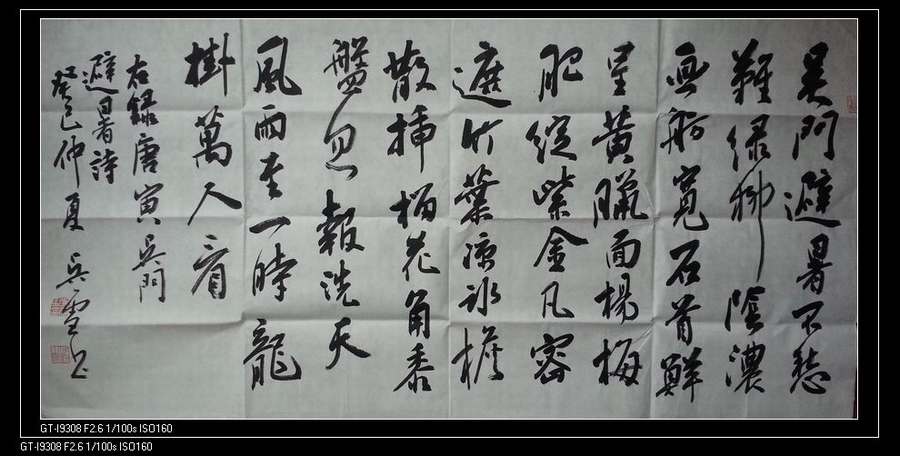 吴門避暑不愁
難绿柳陰濃
画舫寬石首鮮
呈黄臘面楊梅
肥綻紫金丸密
遮竹葉凉冰檐
散插榴花角黍
盤忽報洗天
風雨至一時龍
掛萬人看
右録唐寅吴門
避暑詩
癸巳仲夏 吴雪书
GT-I9308 F2.6 1/100s ISO160
GT-I9308 F2.6 1/100s ISO160